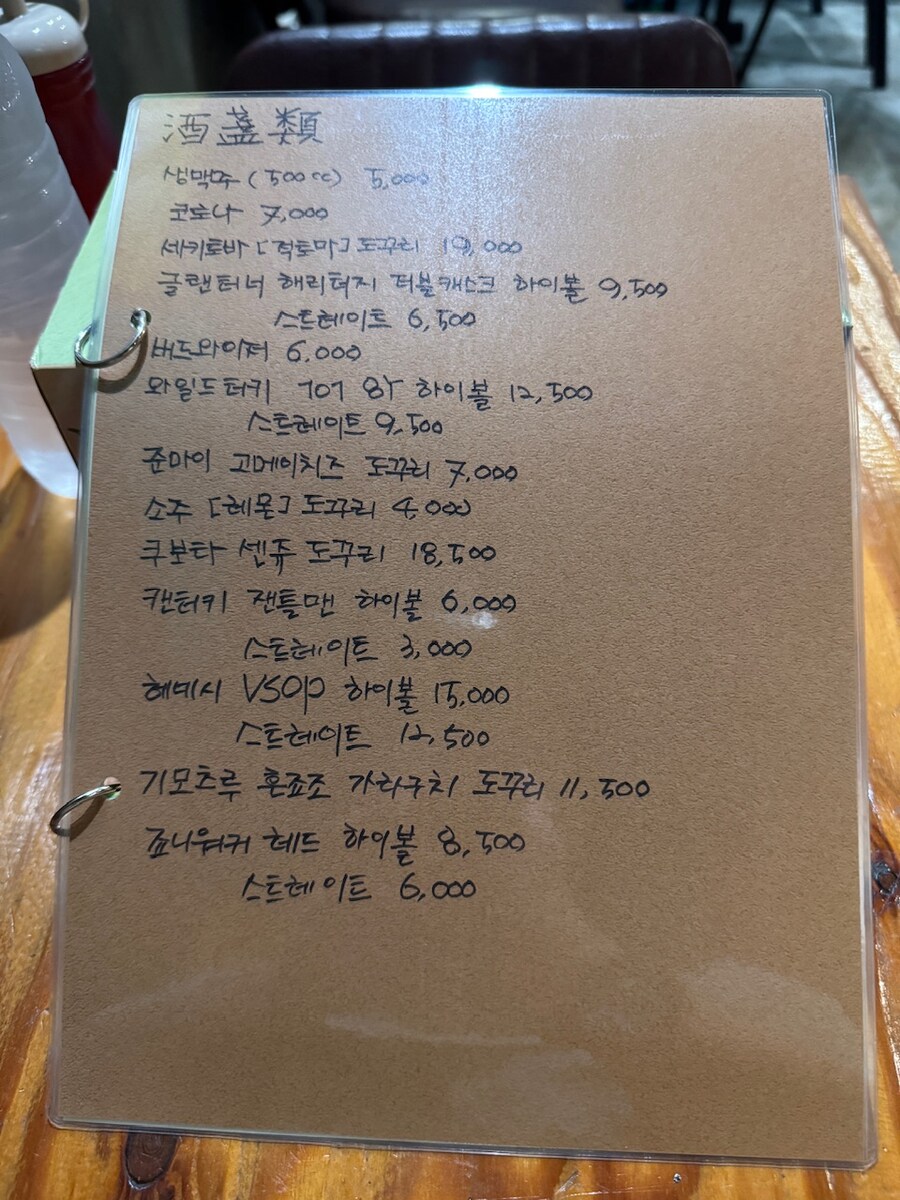 酒盞類
생맥주 (500cc) 5,000
코로나 7,000
세키토바 [적토마] 도꾸리 19,000
글랜터너 해리터지 더블캐스크 하이볼 9,500
스트레이트 6,500
버드와이저 6,000
와일드터키 101 8Y 하이볼 12,500
스트레이트 9,500
준마이 고메이치즈 도꾸리 7,000
소주 [레몬] 도꾸리 4,000
쿠보타 센쥬 도꾸리 18,500
캔터키 잰틀맨 하이볼 6,000
스트레이트 3,000
헤네시 VSOP 하이볼 15,000
스트레이트 12,500
기모츠루 혼죠조 가라구치 도꾸리 11,500
죠니워커 레드 하이볼 8,500
스트레이트 6,000